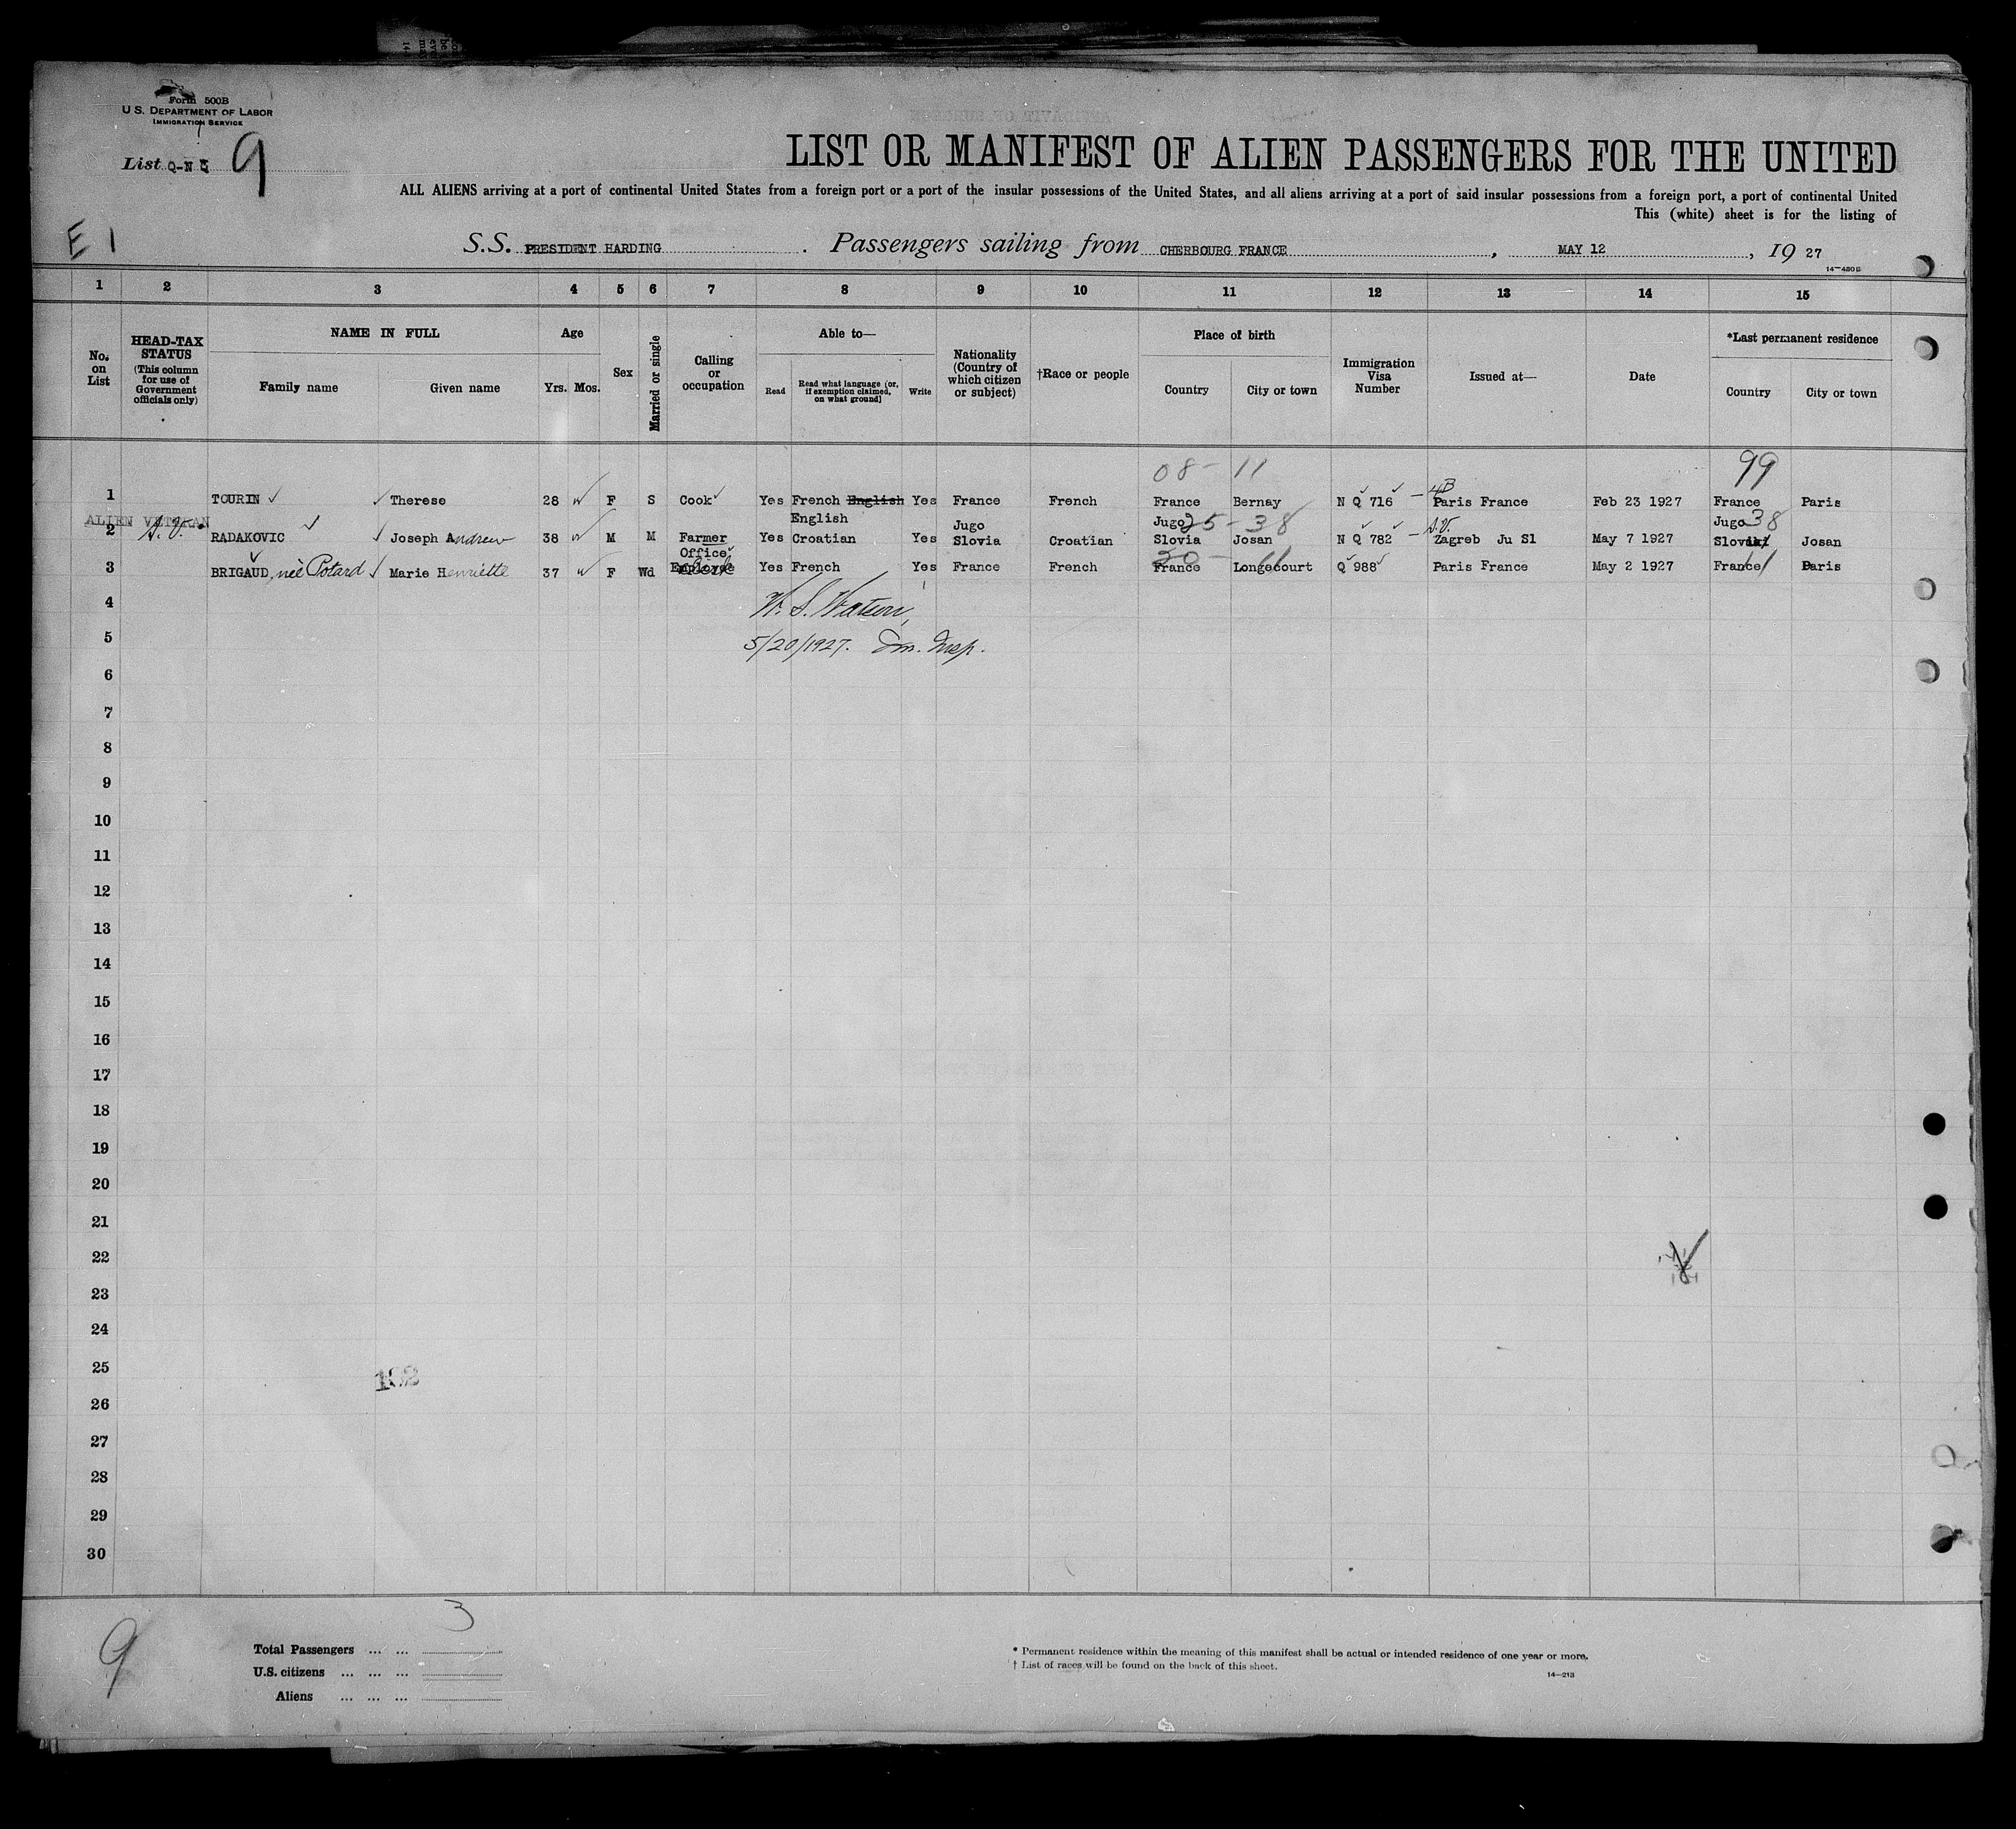 Form 500B
U.S. DEPARTMENT OF LABOR
IMMIGRATION SERVICE
List Q-N 9
E 1
LIST OR MANIFEST OF ALIEN PASSENGERS FOR THE UNITED
ALL ALIENS arriving at a port of continental United States from a foreign port or a port of the insular possessions of the United States, and all aliens arriving at a port of said insular possessions from a foreign port, a port of continental United
This (white) sheet is for the listing of
S.S. PRESIDENT HARDING . Passengers sailing from CHERBOURG FRANCE , MAY 12 , 19 27
14—430B
1 2 3 4 5 6 7 8 9 10 11 12 13 14 15
No. on List
HEAD-TAX STATUS (This column for use of Government officials only)
NAME IN FULL
Family name Given name
Age
Yrs. Mos.
Sex
Married or single
Calling or occupation
Able to—
Read Read what language (or, if exemption claimed, on what ground) Write
Nationality (Country of which citizen or subject)
†Race or people
Place of birth
Country City or town
Immigration Visa Number
Issued at—
Date
*Last permanent residence
Country City or town
08 - 11 99
1 TOURIN ✓ ✓ Therese 28 F S Cook ✓ Yes French English Yes France French France Bernay N Q 716 — 4B Paris France Feb 23 1927 France Paris
ALIEN VETERAN
2 RADAKOVIC ✓ ✓ Joseph Andrew 38 M M Farmer Yes English Croatian Yes Jugo Slovia Croatian Jugo Slovia 25 - 38 Josan N Q 782 — Zagreb Ju Sl May 7 1927 Jugo 38 Josan
3 BRIGAUD, née Potard ✓ Marie Henriette 37 F Wd Office Yes French Yes France French France 30 - 11 Longecourt Q 988 Paris France May 2 1927 France 11 Paris
4 W. S. Watson,
5 5/20/1927. Im. Insp.
6
7
8
9
10
11
12
13
14
15
16
17
18
19
20
21
22
23
24
25
26
27
28
29
30
9
3
Total Passengers ... ...
U.S. citizens ... ... ...
Aliens ... ... ...
* Permanent residence within the meaning of this manifest shall be actual or intended residence of one year or more.
† List of races will be found on the back of this sheet.
14—213